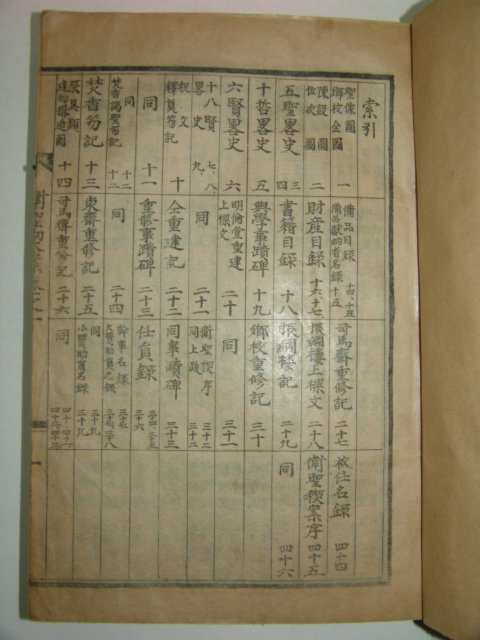 索引
聖像圖
鄕校全圖 一
陳設圖
位次圖 二
五聖畧史 三 四
十哲畧史 五
六賢畧史 六
十八賢 七、八
畧史
祝文 九、
釋奠笏記 十
同 十一
同 十二
焚香謁聖笏記 十二
焚香笏記 十三
祭具類
十四
備品目錄
備品獻納者名錄 十五
財産目錄 十六 十七
書籍目錄 十八
興學事蹟碑 十九
明倫堂重建
上樑文 二十
同 二十一
仝重建記 二十二
重修事蹟碑 二十三
同 二十四
東齋重修記 二十五
司馬齋重修記 二十六
司馬齋重修記 二十七
振綱樓上樑文 二十八
振綱樓記 二十九
鄕校重修記 三十
同 三十一
衛聖禊序 三十二
同上跋 三十三
同事蹟碑 三十三
任員錄 三四、三五
三六
幹事名錄 三十七
大賛助員名錄 三十七、三十八
同 三十九
小賛助員名錄 三十九
同 四十、四十一
四十二、四十三
校任名錄 四十四
衛聖禊案序 四十五
同 四十六